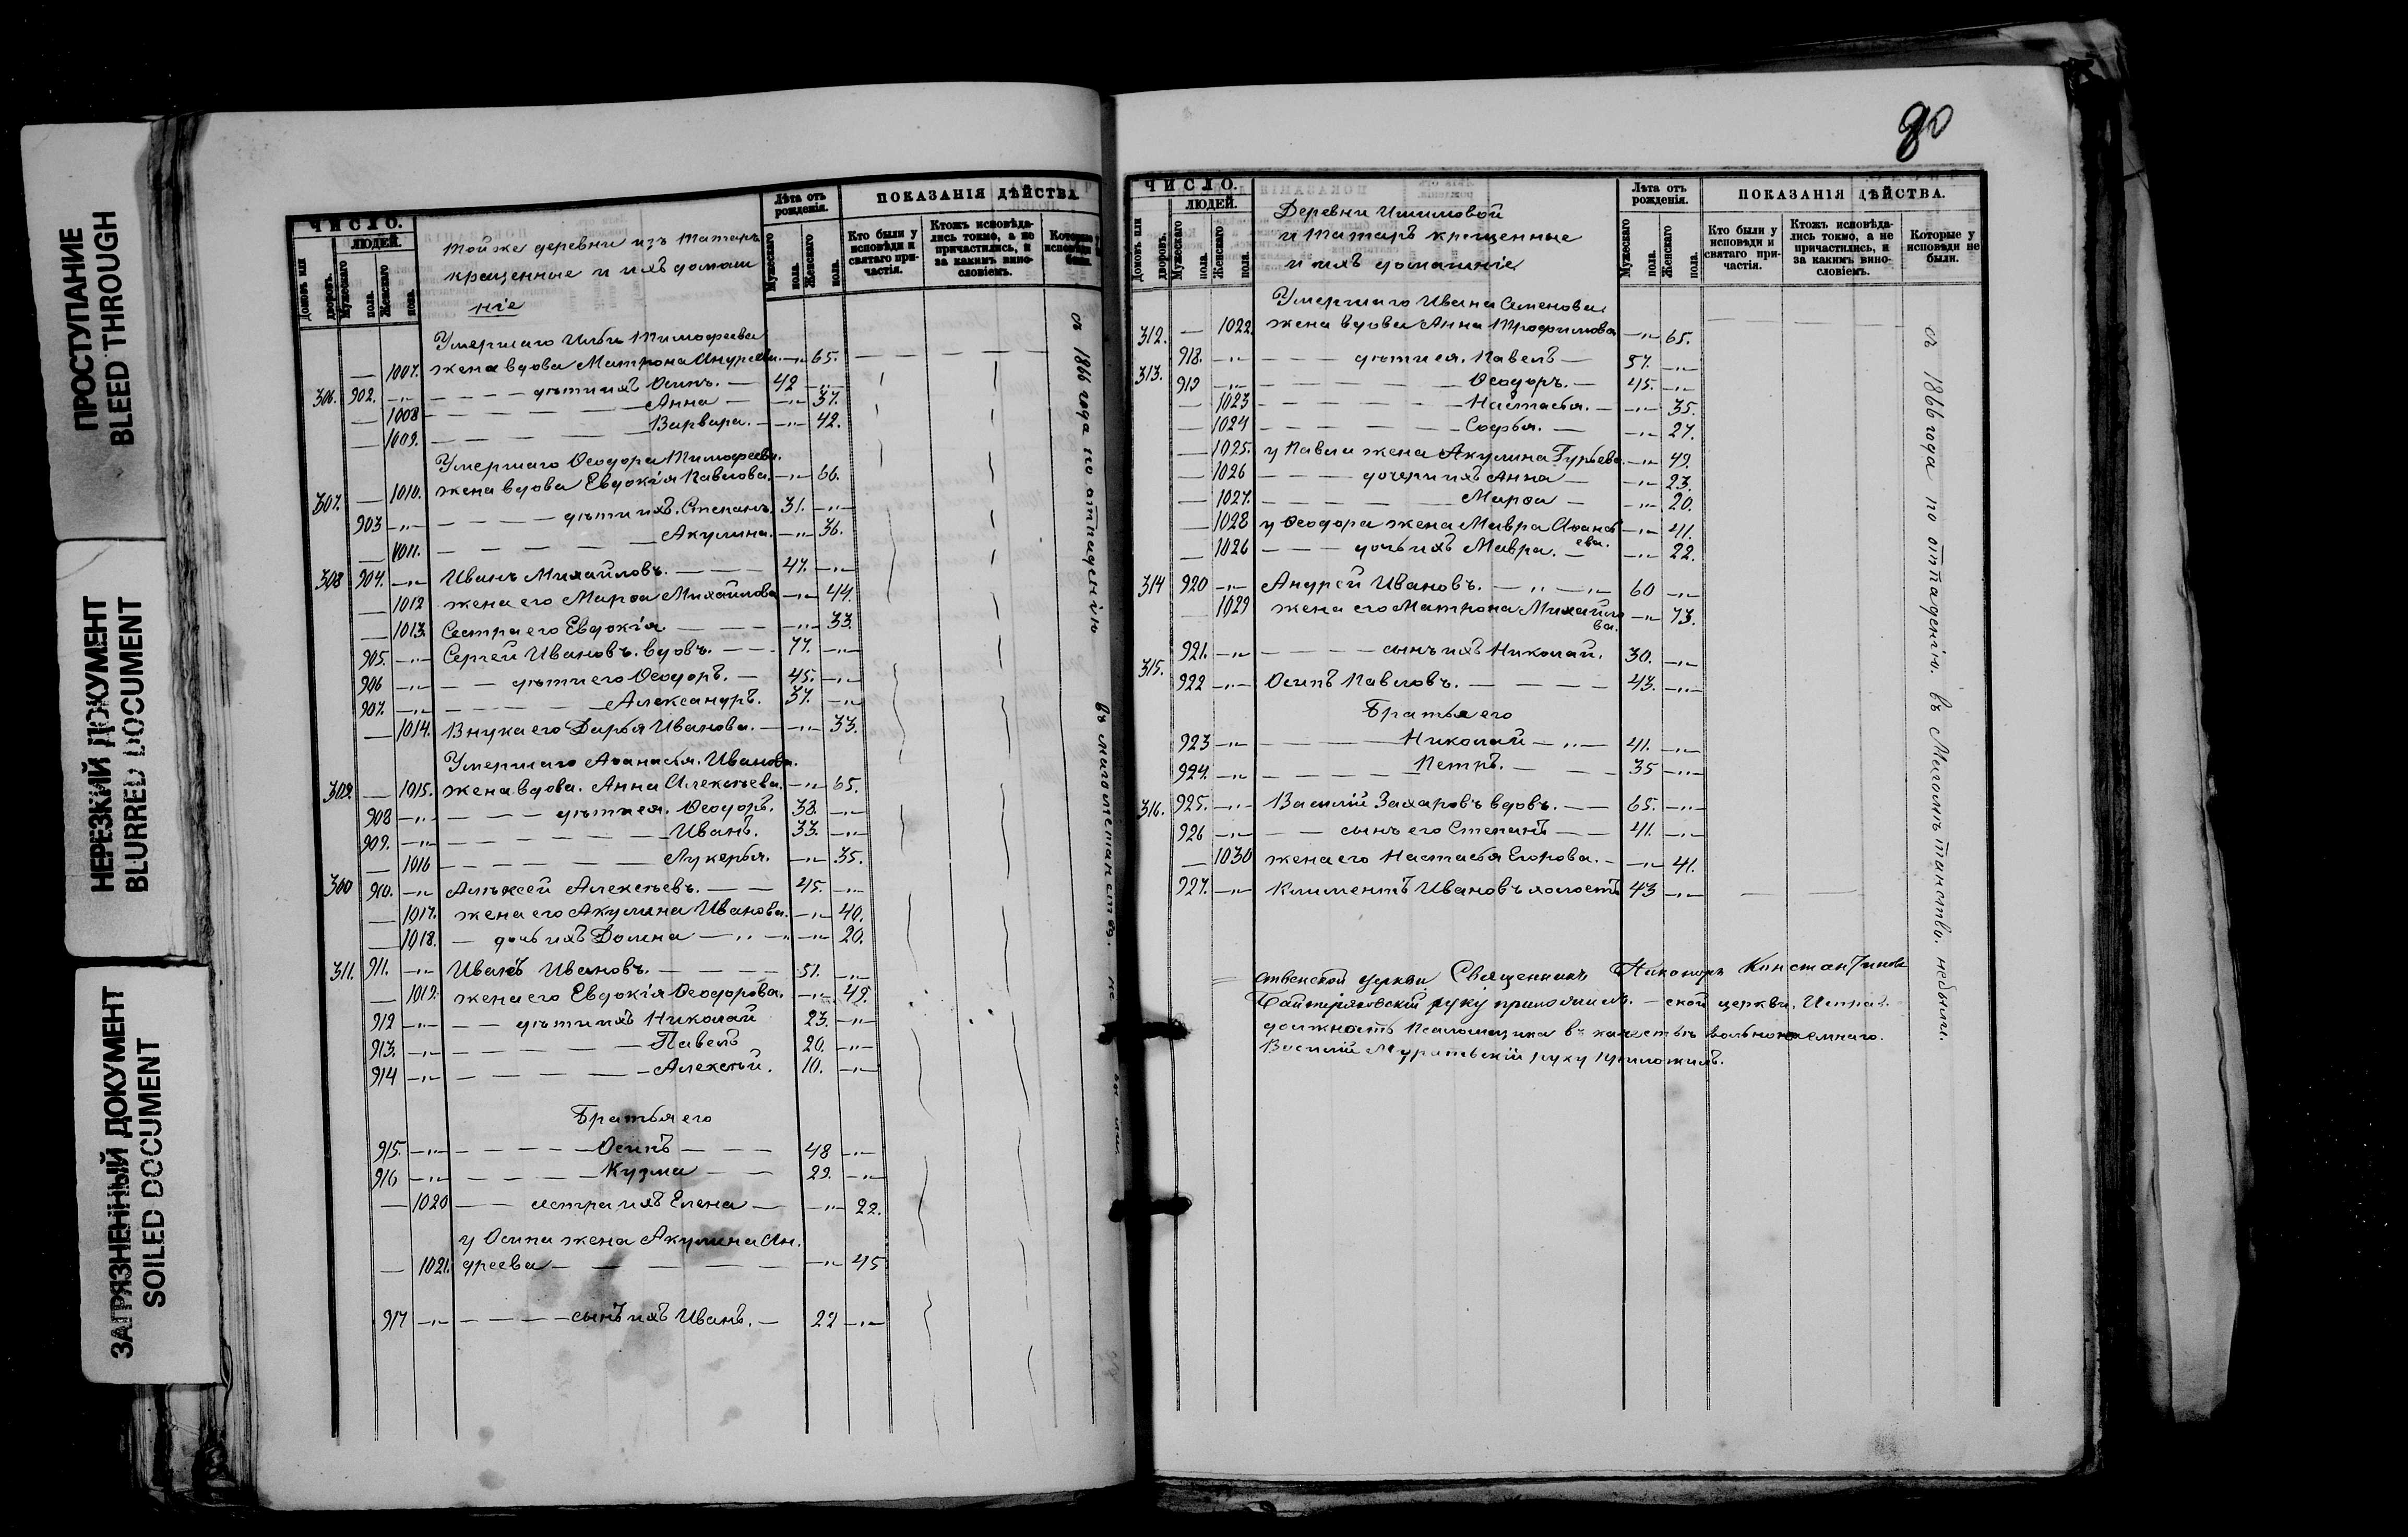 ПРОСТУПАНИЕ
BLEED THROUGH
НЕРЕЗКИЙ ДОКУМЕНТ
BLURRED DOCUMENT
ЗАГРЯЗНЕННЫЙ ДОКУМЕНТ
SOILED DOCUMENT
ЧИСЛО.
ЛЮДЕЙ.
Домовъ или дворовъ.
Мужескаго пола.
Женскаго пола.
Той же деревни изъ Татаръ
крещенные и ихъ домаш
ніе
Лѣта отъ рожденія.
Мужескаго пола.
Женскаго пола.
ПОКАЗАНІЯ ДѢЙСТВА
Кто были у исповѣди и святаго причастія.
Ктожъ исповѣдались токмо, а не причастились, и за какимъ винословіемъ.
Которые исповѣди не были.
Умершаго Ильи Тимофеева
— 1007. жена вдова Матрона Андреева. —„— 65.
306. 902. —„— дѣти ихъ Осипъ. — 42 —„—
— 1008 — Анна — —„— 37.
— 1009. — Варвара. — —„— 42.
Умершаго Ѳеодора Тимофеева.
307. — 1010. жена вдова Евдокія Павлова. —„— 66.
903 —„— дѣти ихъ. Степанъ. 31. —„—
— 1011. — Акулина. —„— 36.
308 904. —„— Иванъ Михайловъ. — 47. —„—
— 1012 жена его Марѳа Михайлова —„— 44.
— 1013. Сестра его Евдокія. — —„— 33.
905. —„— Сергей Ивановъ. вдовъ. — 77. —„—
906 —„— дѣти его Ѳеодоръ. — 45. —„—
907. —„— Александръ. 37. —„—
— 1014. Внука его Дарья Иванова. — —„— 33.
Умершаго Аѳанасья. Иванова.
309. — 1015. жена вдова. Анна Алексѣева. —„— 65.
908 —„— дѣти ея. Ѳеодоръ. 38. —„—
909. —„— Иванъ. 33. —„—
— 1016 — Лукерья. —„— 35.
300 910. —„— Алѣксей Алексѣевъ. — 45. —„—
— 1017. жена его Акулина Иванова. —„— 40.
— 1018. — дочь ихъ Домна —„— 20.
311. 911. —„— Иванъ Ивановъ. — 51. —„—
— 1019. жена его Евдокія Ѳеодорова. —„— 49.
912 —„— дѣти ихъ Николай 23. —„—
913. —„— Павелъ 20. —„—
914 —„— Алексѣй. 10. —„—
Братья его
915. —„— Осипъ — 48 —„—
916 —„— Кузма — 29. —„—
— 1020 — сестра ихъ Елена — —„— 22.
у Осипа жена Акулина Ан.
— 1021. дреева — —„— 45
917 —„— сынъ ихъ Иванъ. — 22 —„—
съ 1866 года по отпаденію
въ магометанство. не
90
ЧИСЛО.
ЛЮДЕЙ.
Домовъ или дворовъ.
Мужескаго пола.
Женскаго пола.
Деревни Ишимовой
и Татаръ крещенные
и ихъ домашніе
Лѣта отъ рожденія.
Мужескаго пола.
Женскаго пола.
ПОКАЗАНІЯ ДѢЙСТВА.
Кто были у исповѣди и святаго причастія.
Ктожъ исповѣдались токмо, а не причастились, и за какимъ винословіемъ.
Которые у исповѣди не были.
Умершаго Ивана Семенова.
312. — 1022. жена вдова Анна Трофимова —„— 65.
918. —„— дѣти ея. Павелъ — 57. —„—
313. 919 —„— Ѳеодоръ. — 45. —„—
— 1023 — Настасья. — —„— 35.
— 1024 — Софья. — —„— 27.
— 1025. у Павла жена Акулина Гурьева. —„— 49.
— 1026 — дочери ихъ Анна — —„— 23.
— 1027. — Марѳа — —„— 20.
— 1028 у Ѳеодора жена Мавра Аѳанась —„— 41.
ева.
— 1026 — дочь ихъ Мавра. — —„— 22.
314 920 —„— Андрей Ивановъ. — 60 —„—
— 1029 жена его Матрона Михайло —„— 73.
ва.
921. —„— сынъ ихъ Николай. 30. —„—
315. 922 —„— Осипъ Павловъ. — 43. —„—
Братья его
923 —„— Николай — 41. —„—
924. —„— Петръ. — 35 —„—
316. 925. —„— Василій Захаровъ вдовъ. — 65. —„—
926 —„— сынъ его Степанъ — 41. —„—
— 1030 жена его Настасья Егорова. — —„— 41.
927. —„— Климентъ Ивановъ холостъ 43 —„—
съ 1866 года по отпаденію. въ Магометанство. небыли.
ственской церкви Священникъ Никаноръ Константиновъ
руку приложилъ. — ской церкви. Исправ.
должность Псаломщика въ качествѣ вольнонаемнаго.
Василій руку приложилъ.